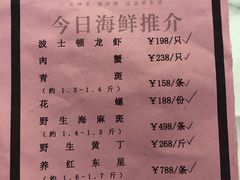 今日海鲜推介
波士顿龙虾 ¥198/只
肉蟹 ¥238/只
青斑 ¥158/条
(约1.3-1.4斤)
花螺 ¥188/份
野生海麻斑 ¥498/条
(约1.4-1.5斤)
野生黄丁 ¥268/斤
养红东星 ¥788/条
(约1.6-1.7斤)